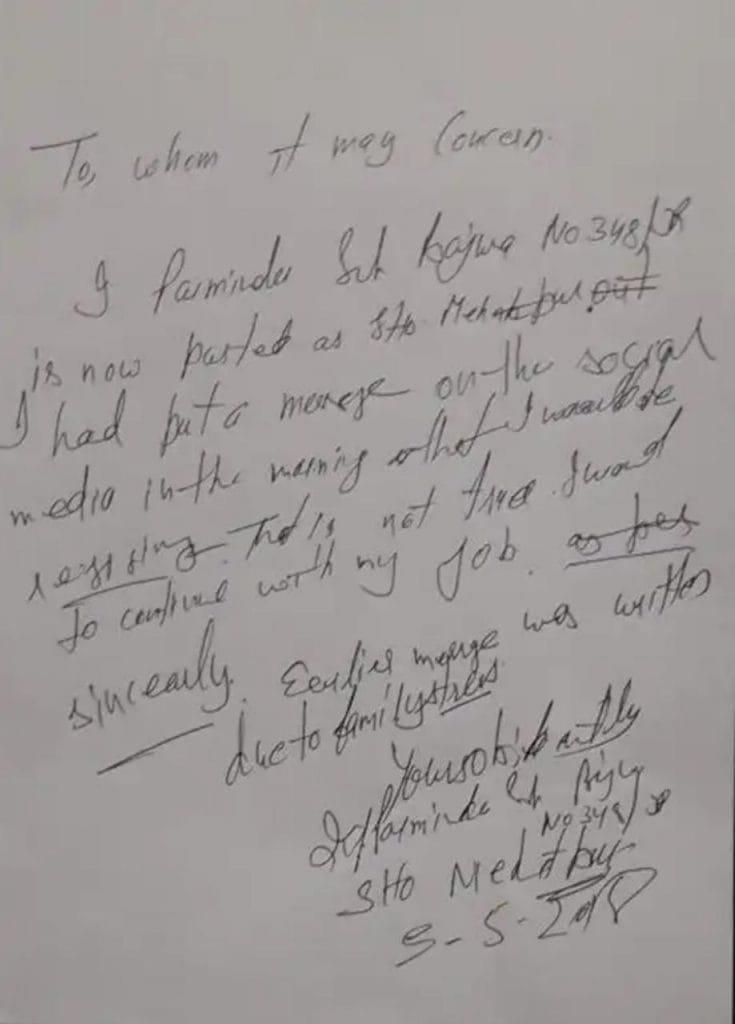 To, whom it may Concern.
I Parminder Sgh Bajwa No 348/JR
is now posted as SHO Mehatpur. out
I had put a message on the social
media in the morning that I would be
resigning. That is not true. I want
to continue with my job. as per
sincearly. Eearlier message was written
due to family stress.
Yours obidiantly
Parminder Sgh Bajwa
No 348/JR
SHO Mehatpur
5-5-2018